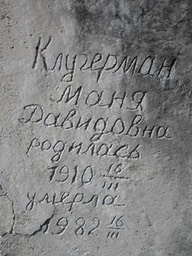 Клугерман
Маня
Давидовна
родилась
1910 16/III
умерла
1982 16/III